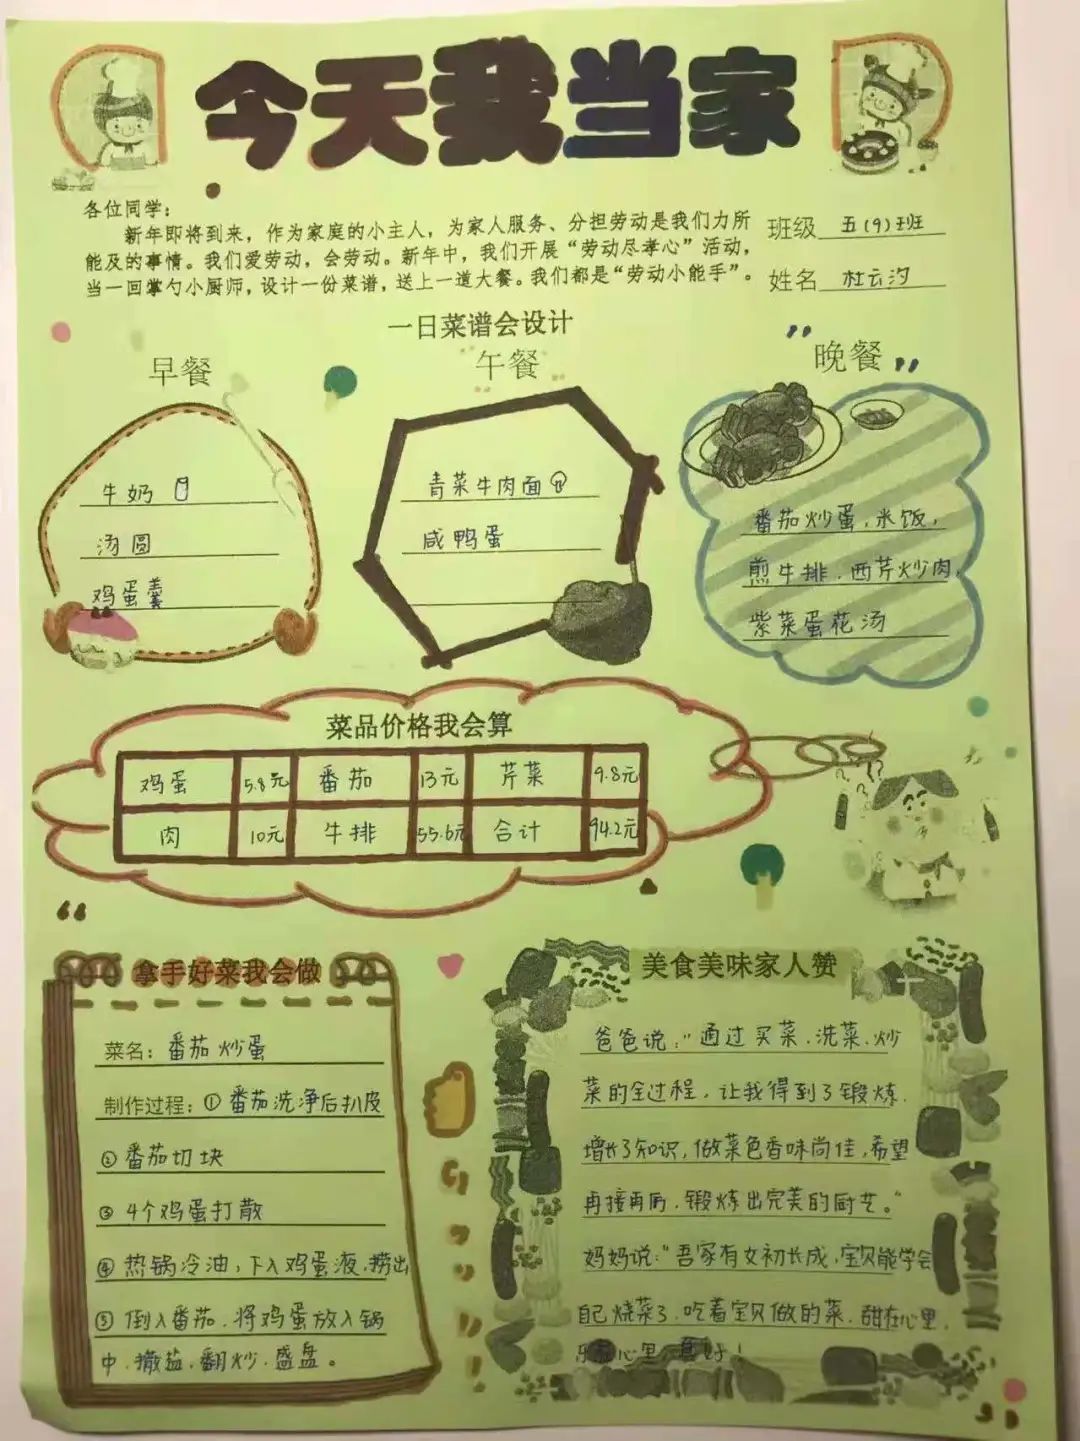 今天我当家
各位同学：
新年即将到来，作为家庭的小主人，为家人服务、分担劳动是我们力所
能及的事情。我们爱劳动，会劳动。新年中，我们开展“劳动尽孝心”活动，
当一回掌勺小厨师，设计一份菜谱，送上一道大餐。我们都是“劳动小能手”。
班级 五(9)班
姓名 杜云汐
一日菜谱会设计
早餐
牛奶
汤圆
鸡蛋羹
午餐
青菜牛肉面
咸鸭蛋
晚餐
番茄炒蛋、米饭、
煎牛排、西芹炒肉、
紫菜蛋花汤
菜品价格我会算
鸡蛋 5.8元 番茄 13元 芹菜 9.8元
肉 10元 牛排 55.6元 合计 94.2元
拿手好菜我会做
菜名：番茄炒蛋
制作过程：①番茄洗净后扒皮
②番茄切块
③4个鸡蛋打散
④热锅冷油，下入鸡蛋液，捞出
⑤倒入番茄，将鸡蛋放入锅
中，撒盐，翻炒，盛盘。
美食美味家人赞
爸爸说：“通过买菜、洗菜、炒
菜的全过程，让我得到了锻炼，
增长了知识，做菜色香味尚佳，希望
再接再厉，锻炼出完美的厨艺。”
妈妈说：“吾家有女初长成，宝贝能学会
自己烧菜了，吃着宝贝做的菜，甜在心里，
乐在心里，真好！